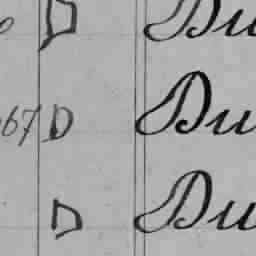 D Du
67 D Du
D Du